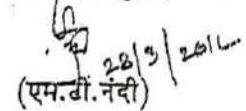 28/3/2016
(एम.वी. नंदी)